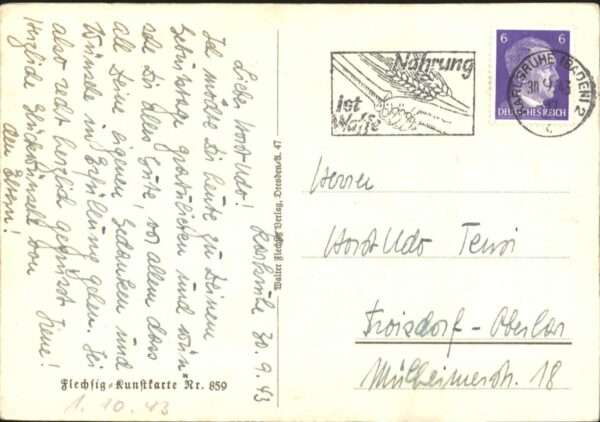 Karlsruhe 30.9.43
Lieber Horst Udo!
Ich möchte Dir heute zu Deinem
Geburtstage gratulieren und wün
sche Dir alles Gute, vor allem dass
all Deine eigenen Gedanken und
Wünsche in Erfüllung gehen. Sei
also recht herzlich gegrüsst
Herzliche Glückwünsche von
den Eltern!
Flechsig-Kunstkarte Nr. 859
1. 10. 43
Walter Flechsig Verlag, Dresden-A. 47
Nahrung
ist
Waffe
6 6
DEUTSCHES REICH
KARLSRUHE (BADEN) 2
30. 9. 43
Herrn
Horst Udo
Troisdorf - Oberlar
Mülheimerstr. 18